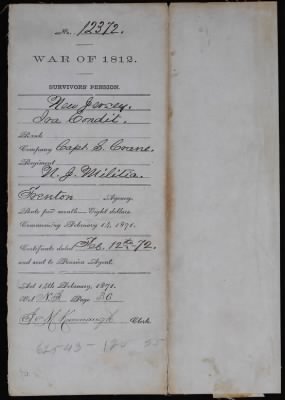 No. 12372.
WAR OF 1812.
SURVIVORS' PENSION.
New Jersey.
Ira Condit.
Rank
Company Capt. S. Crane.
Regiment
N. J. Militia.
Trenton Agency.
Rate per month—Eight dollars
Commencing February 14, 1871.
Certificate dated Feb. 12th 72.
and sent to Pension Agent.
Act 14th February, 1871.
Vol. N.J. Page 36
Kavanaugh Clerk.